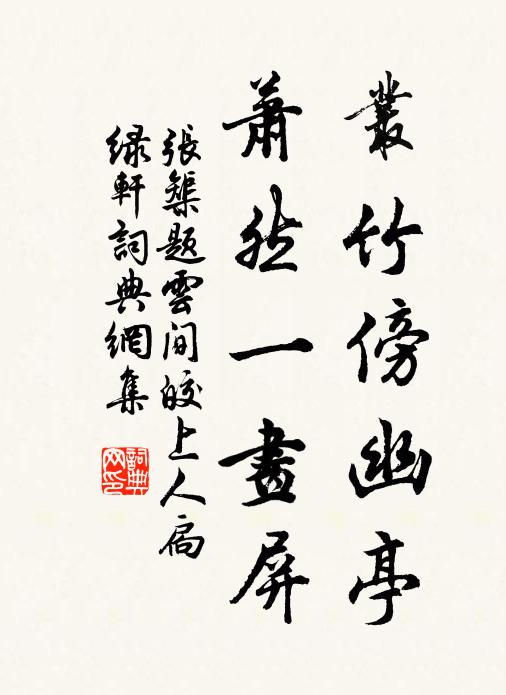 叢竹傍幽亭
蕭然一畫屏
張榘題雲間皎上人扇
绿軒詞典網集
詞典网印